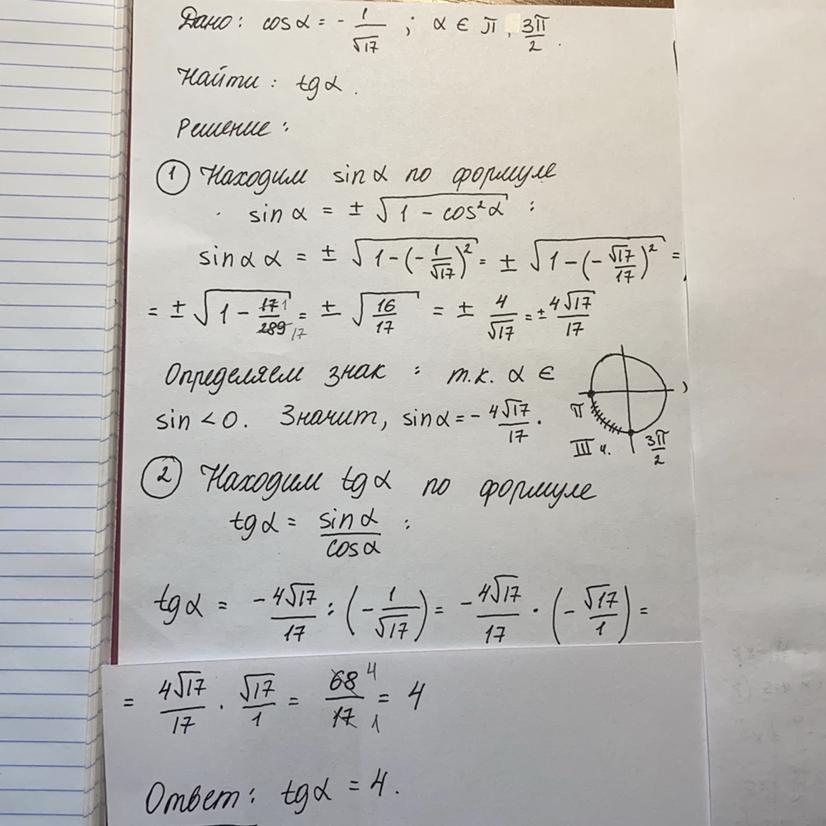 Дано: cos α = - 1/√17 ; α ∈ π, 3π/2.
Найти: tg α.
Решение:
① Находим sin α по формуле
sin α = ± √(1 - cos²α) :
sin α α = ± √(1-(-1/√17)²) = ± √(1-(-√17/17)²) =
= ± √(1 - 17 1/289 17) = ± √(16/17) = ± 4/√17 = ± 4√17/17
Определяем знак : т.к. α ∈ ,
sin < 0. Значит, sin α = - 4√17/17.
π
III ч. 3π/2
② Находим tg α по формуле
tg α = sin α/cos α :
tg α = - 4√17/17 : (- 1/√17) = - 4√17/17 · (- √17/1) =
= 4√17/17 · √17/1 = 68 4/17 1 = 4
Ответ: tg α = 4.